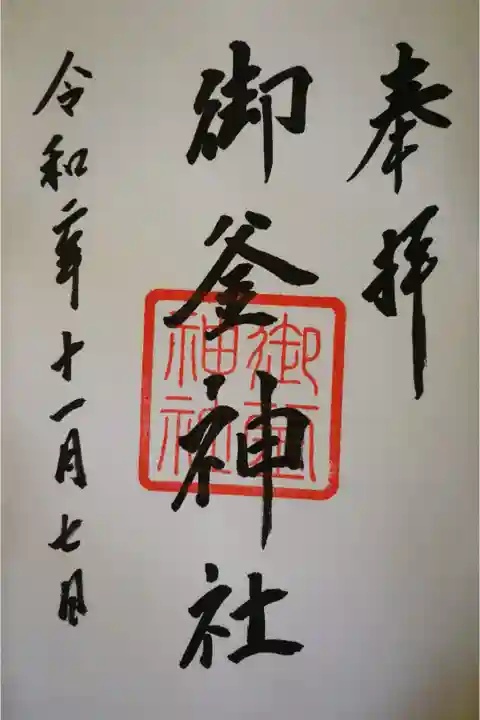 奉拝
御釜神社
令和二年十一月七日
御
神社